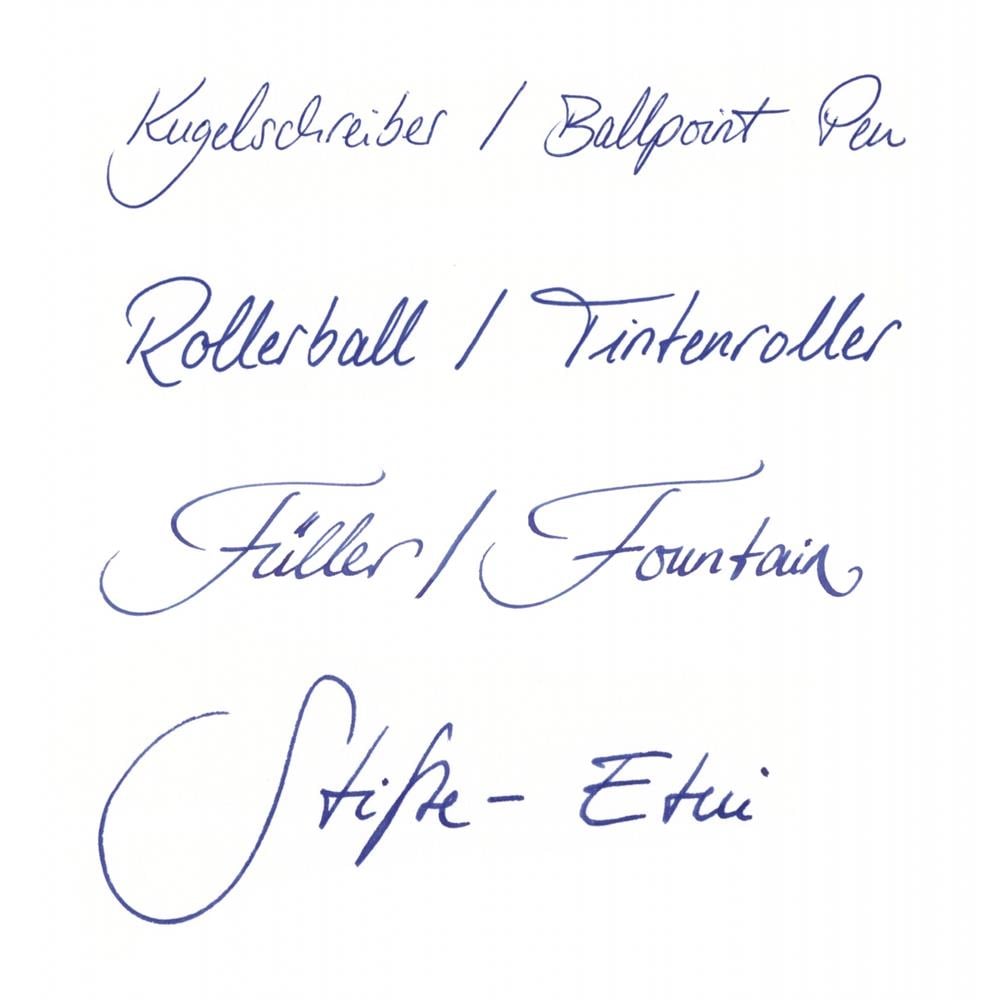 Kugelschreiber / Ballpoint Pen
Rollerball / Tintenroller
Füller / Fountain
Stifte - Etui